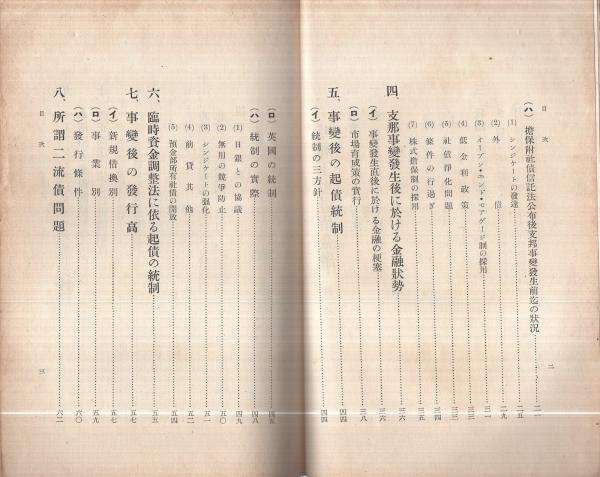 目次
(ハ) 擔保附社債信託法公布後支那事變發生前迄の狀況……二一
(1) シンジケートの發達……二五
(2) 外債……二九
(3) オープン・エンド・モアゲージ制の採用……三一
(4) 低金利政策……三三
(5) 社債淨化問題……三三
(6) 條件の行過ぎ……三四
(7) 株式擔保制の採用……三五
四、支那事變發生後に於ける金融狀勢……三六
(イ) 事變發生直後に於ける金融の梗塞……三六
(ロ) 市場育成策の實行……三八
五、事變後の起債統制……四四
(イ) 統制の三方針……四四
二
(ロ) 英國の統制……四五
(ハ) 統制の實際……四八
(1) 日銀との協議……四九
(2) 無用の競爭防止……五〇
(3) シンジケートの强化……五一
(4) 前貸其他……五二
(5) 預金部所有社債の開放……五四
六、臨時資金調整法に依る起債の統制……五五
七、事變後の發行高……五七
(イ) 新規借換別……五七
(ロ) 事業別……五九
(ハ) 發行條件……六〇
八、所謂二流債問題……六二
目次
三